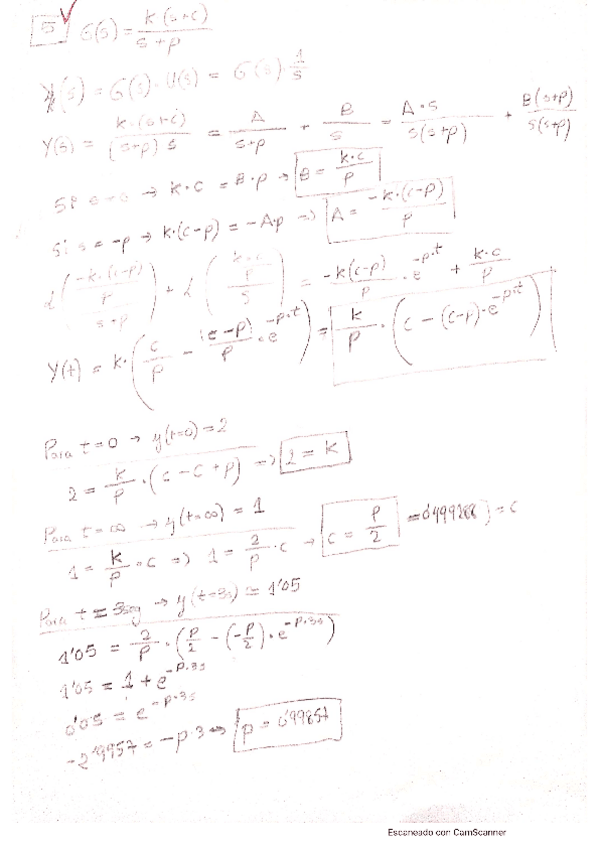 5 G(s) = k(s+c) / s+p
Y(s) = G(s)·U(s) = G(s)·1/s
Y(s) = k·(s+c) / (s+p) s = A / s+p + B / s = A·s / s(s+p) + B(s+p) / s(s+p)
Si s=0 → k·c = B·p → B = k·c / p
Si s=-p → k·(c-p) = -A·p => A = -k·(c-p) / p
L( -k·(c-p) / p / s+p ) + L( k·c / p / s ) = -k(c-p) / p · e^-p·t + k·c / p
Y(t) = k·( c/p - (c-p)/p · e^-p·t ) = k/p · ( c - (c-p)·e^-p·t )
Para t=0 → y(t=0)=2
2 = k/p · (c - c + p) => 2 = k
Para t=∞ → y(t=∞) = 1
1 = k/p · c => 1 = 2/p · c → c = p/2 = 0'499288 = c
Para t = 3seg → y(t=3s) = 1'05
1'05 = 2/p · ( p/2 - (-p/2)·e^-p·3s )
1'05 = 1 + e^-p·3s
0'05 = e^-p·3s
-2'9957 = -p·3 => p = 0'99857
Escaneado con CamScanner